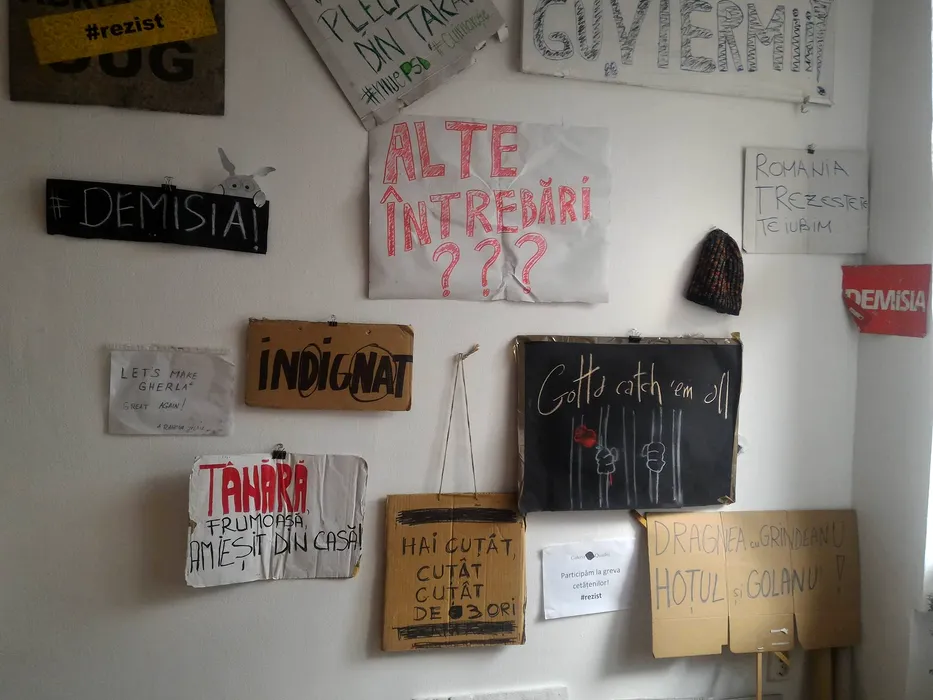 #rezist
PLEC
DIN ȚARA
#muiePSD
GUVIERMII
# DEMISIA!
ALTE
ÎNTREBĂRI
???
ROMANIA
TREZEȘTE-TE
TE IUBIM
DEMISIA
LET'S MAKE
GHERLA*
GREAT AGAIN!
INDIGNAT
Gotta catch 'em all
TÂNĂRĂ
FRUMOASĂ,
AM IEȘIT DIN CASĂ!
HAI CUȚÂT,
CUȚÂT
CUȚÂT
DE 3 ORI
Participăm la greva
cetățenilor!
#rezist
DRAGNEA cu GRINDEANU
HOȚUL și GOLANU'!